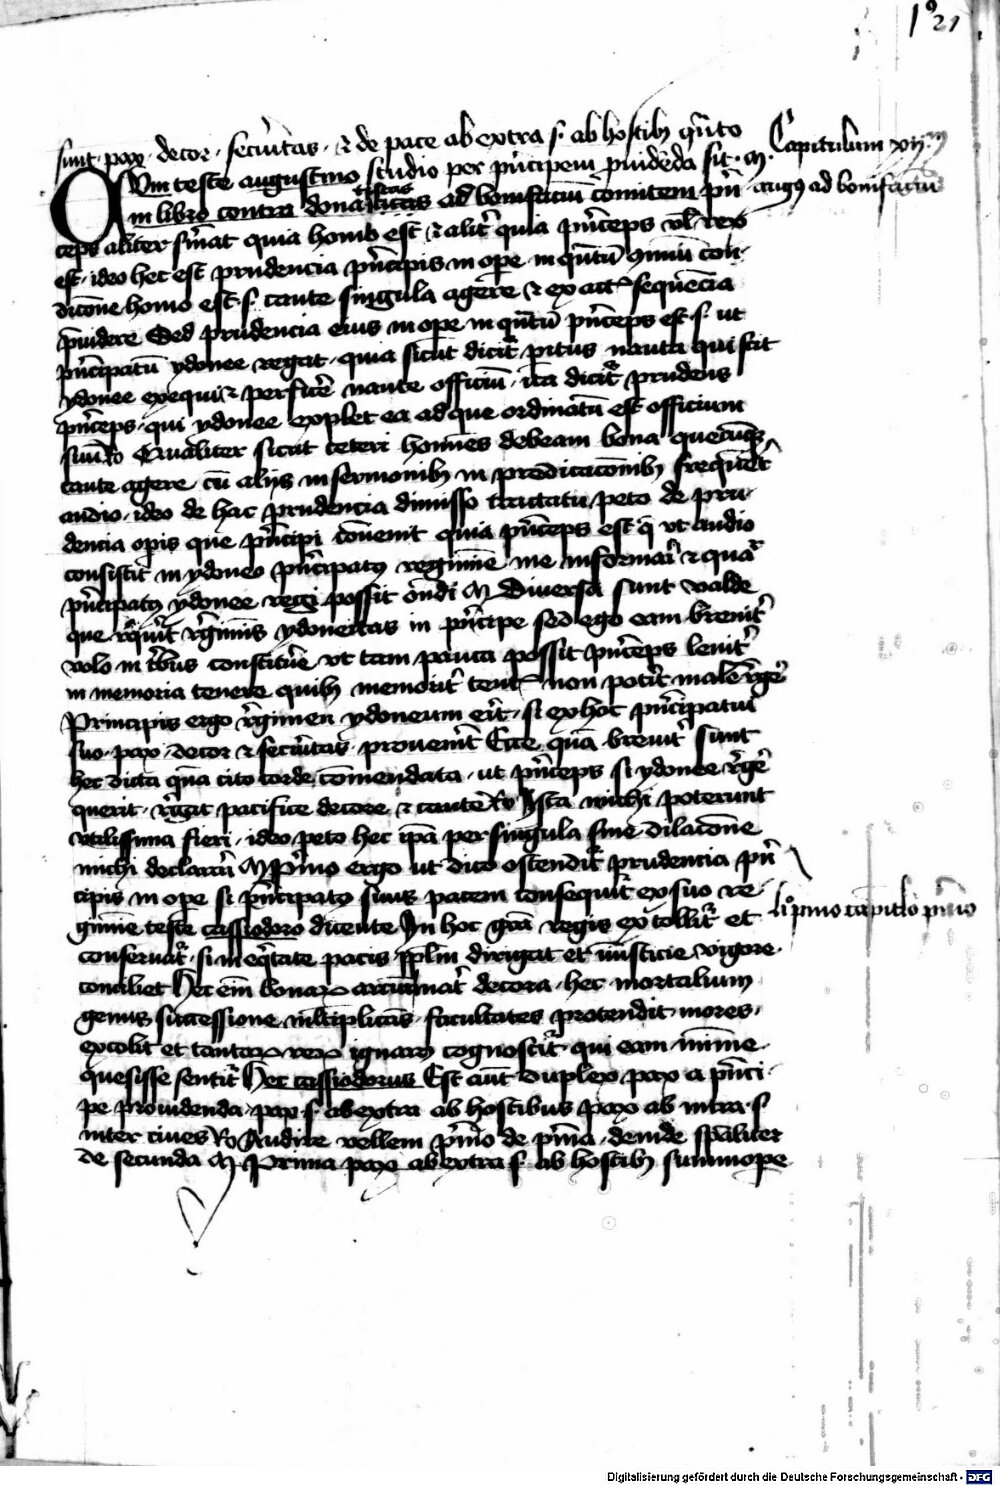 1º 21
sunt · pax · decor · securitas · et de pace ab extra s. ab hostibꝫ quanto
Capitulum vijm
Qum teste augustino studio per principem prouideda sit · M ·
in libro contra donatistas ad bonifacium comitem prin
augꝰ ad bonifaciu
ceps aliter seruat quia homo est et aliter quia princeps vel rex
est · ideo hec est prudencia principis in ope in quantum communi con
dicione homo est · s. caute singula agere et exacte sequencia
prouidere Sed prudencia eius in ope in quantum princeps est · s. ut
principatum ydonee regat · quia sicut dicitur peritus nauta qui scit
ydonee exequi et perficere naute officium · ita dicitur prudens
princeps · qui ydonee explet ea ad que ordinatum est officium
suum Qualiter sicut ceteri homines debeam bona quecunqꝫ
caute agere · cum alijs in sermonibꝫ in predicacionibꝫ frequenter
audio · ideo de hac prudencia dimisso tractatu peto de pru
dencia opis que principi conuenit quia princeps est que vt audio
consistit in ydoneo principatꝰ regimine me informari et qua
principatꝰ ydonee regi possit ondi M Diuersa sunt valde
que requirit regiminis ydoneitas in principe sed ego eam breuiter
volo in tribus constituere vt tam pauca possit princeps leuiter
in memoria tenere quibꝫ memoriter tentis non poterit male regere
Principis ergo regimen ydoneum erit · si ex hoc principatui
suo · pax · decor et securitas · prouenerit Ecce quam breuiter sunt
hec dicta quam cito corde comendata · ut princeps si ydonee regere
querit · regat pacifice decore · et caute Ista michi poterunt
vtilissima fieri · ideo peto hec ipa per singula sine dilacione
michi declarari M Primo ergo ut dico ostenditur prudencia prin
cipis in ope si principatꝰ suus pacem consequitur ex suo re
li° primo capitulo primo
gimine teste cassiodoro dicente In hoc gloria regis extollitur et
conseruatur · si in equitate pacis populum dirigat et iusticie vigore ·
conciliet Hec enim bonarum arcium mater decora · hec mortalium
genus successione multiplicans · facultates protendit mores ·
excolit et tantarum rerum ignarus cognoscitur · qui eam minime ·
quesisse sentitur Hec cassiodorus Est autem duplex pax a princi
pe prouidenda · pax · s. ab extra ab hostibus pax ab intra · s.
inter ciues Audire vellem primo de prima · deinde specialiter
de secunda M Prima pax ab extra s. ab hostibꝫ summope
Digitalisierung gefördert durch die Deutsche Forschungsgemeinschaft · DFG